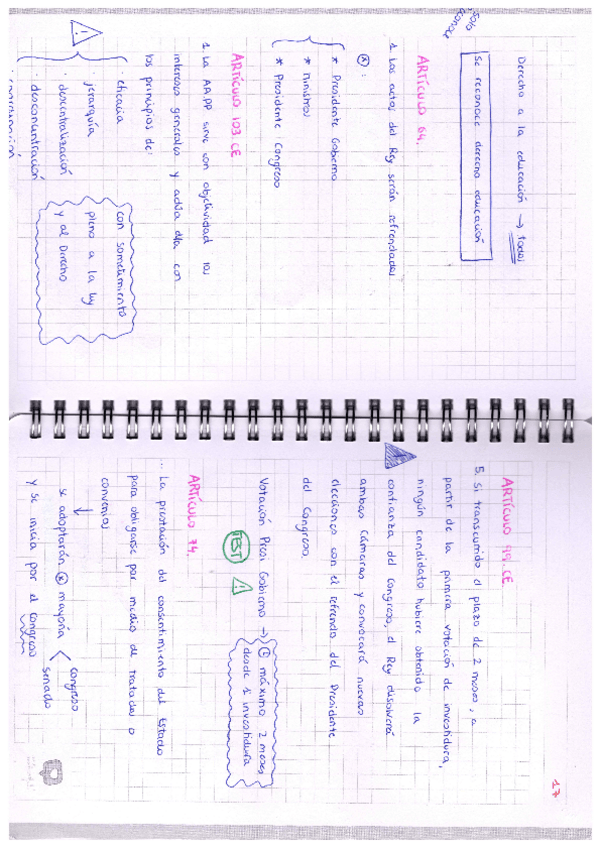 solo
conoce
Derecho a la educación → todos
Se reconoce derecho educación
ARTÍCULO 64.
1. Los actos del Rey serán refrendados
:
* Presidente Gobierno
* Ministros
* Presidente Congreso
ARTÍCULO 103. CE
1. La AAPP sirve con objetividad los
intereses generales y actúa dla con
los principios de:
· eficacia
jerarquía
· descentralización
· desconcentración
con sometimiento
pleno a la ley
y al Derecho
17
ARTÍCULO 99. CE.
5. Si transcurrido el plazo de 2 meses, a
partir de la primera votación de investidura,
ningún candidato hubiere obtenido la
confianza del Congreso, el Rey disolverá
ambas Cámaras y convocará nuevas
elecciones con el refrendo del Presidente
del Congreso.
Votación Presi Gobierno → máximo 2 meses
desde 1 investidura
TEST
ARTÍCULO 74.
... La prestación del consentimiento del Estado
para obligarse por medio de tratados o
convenios
↓
se adoptarán mayoría < congreso
senado
y se inicia por el congreso